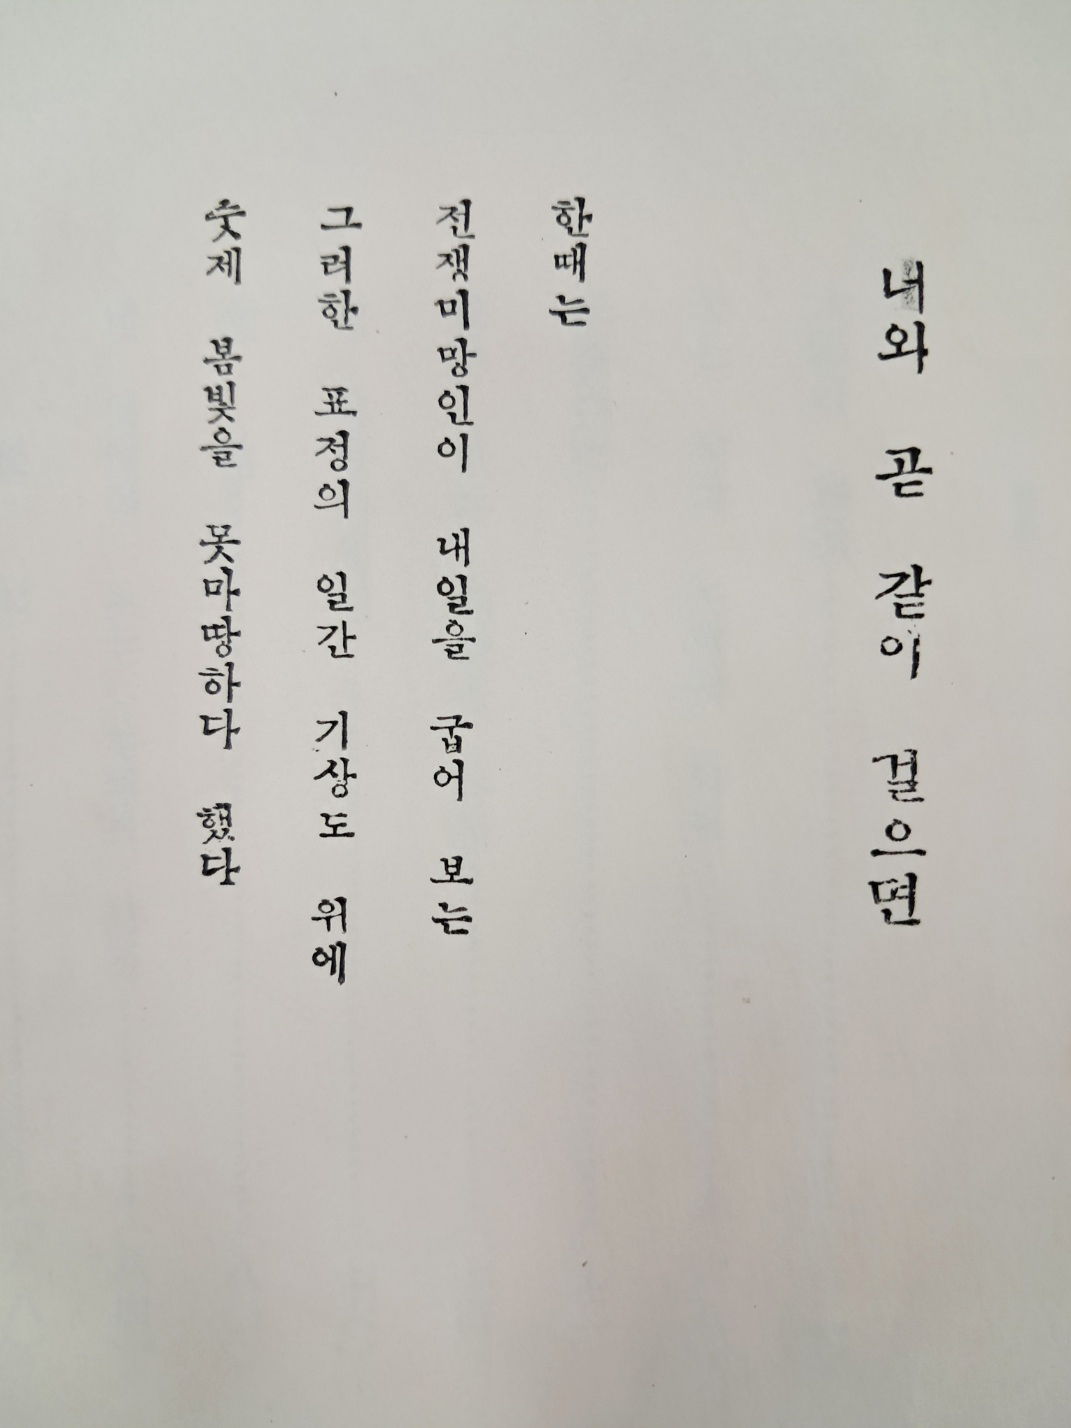 너와 곧 같이 걸으면
한때는
전쟁미망인이 내일을 굽어 보는
그러한 표정의 일간 기상도 위에
숫제 봄빛을 못마땅하다 했다